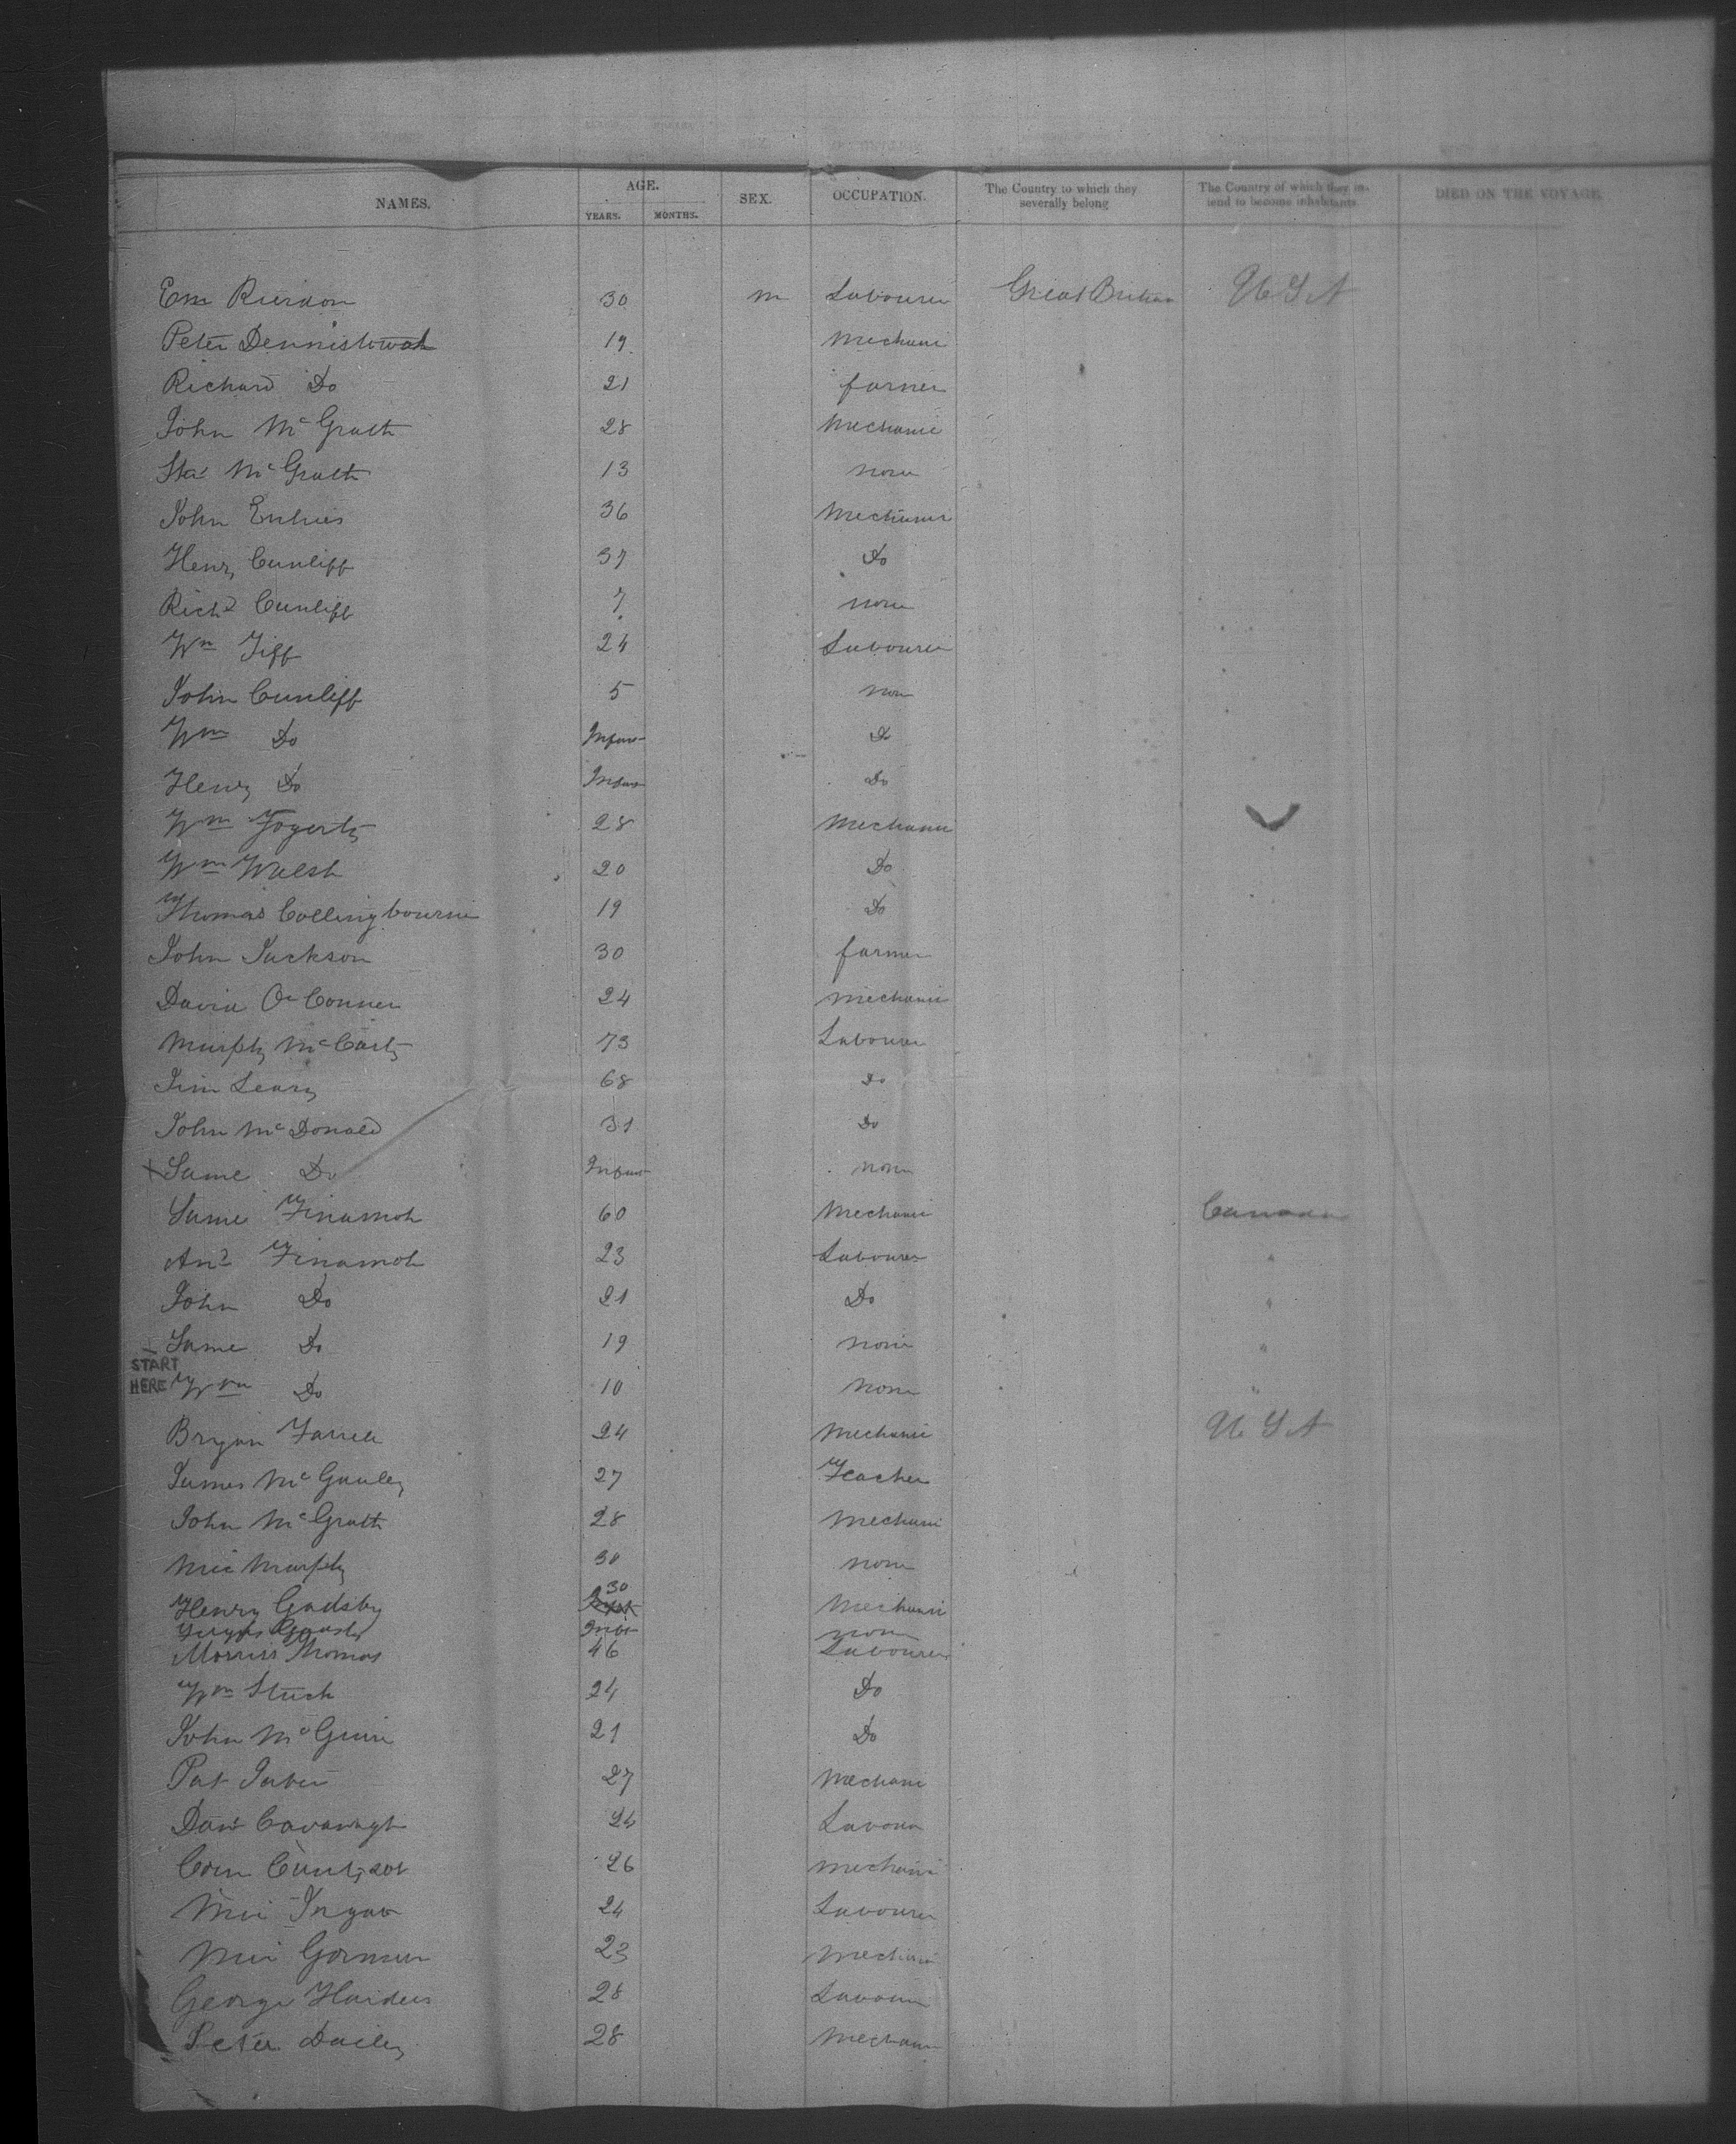 NAMES. AGE. YEARS. MONTHS. SEX. OCCUPATION. The Country to which they severally belong The Country of which they in-tend to become inhabitants DIED ON THE VOYAGE.
Em Rierdon 30 m Labourer Great Britain U S A
Peter 19 Mechanic
Richard Do 21 farmer
John McGrath 28 Mechanic
McGrath 13 none
John 36 Mechanic
Henry Cunliff 37 Do
Richd Cunliff 7 none
Wm Tiff 24 Labourer
John Cunliff 5 non
Wm Do Infant Do
Henry Do Infant Do
Wm Fogerty 28 Mechanic
Wm Walsh 20 Do
Thomas Collingbourne 19 Do
John Jackson 30 farmer
David O Conner 24 Mechanic
Murphy McCarty 73 Labourer
Jim Leary 68 Do
John McDonald 31 Do
Jame Do Infant none
Jame Finamoh 60 Mechanic Canada
And Finamoh 23 Labourer "
John Do 21 Do "
Jame Do 19 none "
START HERE
Wm Do 10 none "
Bryan Farrell 24 Mechanic U S A
James McGauley 27 Teacher
John McGrath 28 Mechanic
Mic Murphy 30 none
Henry Gadsby 30 Mechanic
Gadsby Inft none
Morriss Thomas 46 Labourer
Wm Stuck 24 Do
John McGuire 21 Do
Pat 27 Mechanic
Danl Cavanagh 24 Labour
Corn 26 mechanic
Mic 24 Labourer
Mic Gorman 23 Mechanic
George 28 Labourer
Peter Dailey 28 Mechanic